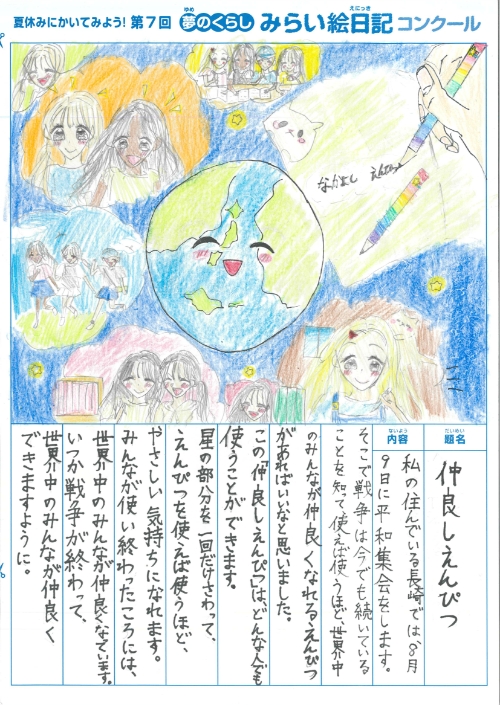 夏休みにかいてみよう! 第7回 夢のくらし みらい絵日記 コンクール
ゆめ
えにっき
なかよし えんぴつ
だいめい
題名
仲良しえんぴつ
ないよう
内容
私の住んでいる長崎では、8月
9日に平和集会をします。
そこで戦争は今でも続いている
ことを知って使えば使うほど、世界中
のみんなが仲良くなれるえんぴつ
があればいいなと思いました。
この「仲良しえんぴつ」はどんな人でも
使うことができます。
星の部分を一回だけさわって、
えんぴつを使えば使うほど、
やさしい気持ちになれます。
みんなが使い終わったころには、
世界中のみんなが仲良くなっています。
いつか戦争が終わって、
世界中のみんなが仲良く
できますように。